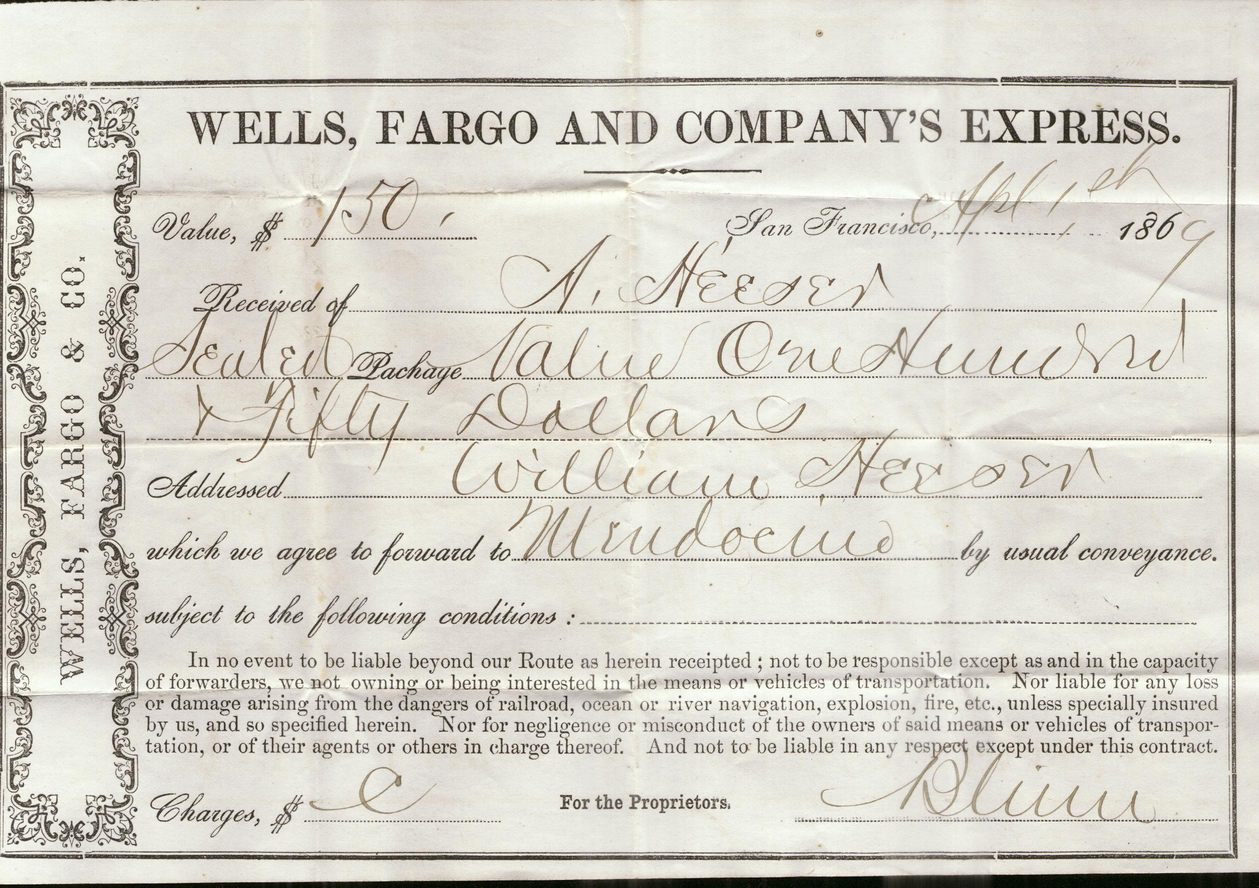 WELLS, FARGO AND COMPANY'S EXPRESS.
WELLS, FARGO & CO.
Value, $ 150. San Francisco, Apl 1st 1869
Received of A. Heeser
Sealed Package Value One Hundred
& Fifty Dollars
Addressed William Heeser
which we agree to forward to Mendocino by usual conveyance.
subject to the following conditions :
In no event to be liable beyond our Route as herein receipted ; not to be responsible except as and in the capacity
of forwarders, we not owning or being interested in the means or vehicles of transportation. Nor liable for any loss
or damage arising from the dangers of railroad, ocean or river navigation, explosion, fire, etc., unless specially insured
by us, and so specified herein. Nor for negligence or misconduct of the owners of said means or vehicles of transpor-
tation, or of their agents or others in charge thereof. And not to be liable in any respect except under this contract.
Charges, $ C For the Proprietors,